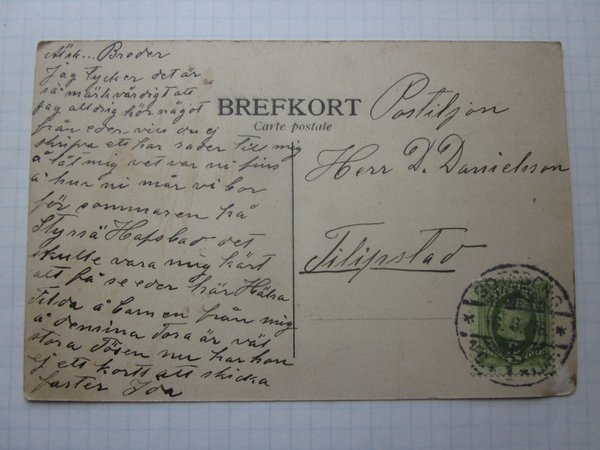 Älsk... Broder
Jag tycker det är
så märkvärdigt att
jag alldrig hör något
från eder vill du ej
skrifva ett par rader till mig
å låt mig vet var ni fins
å hur ni mår vi bor
för sommaren på
Styrsö Hafsbad det
skulle vara mig kärt
att få se eder här Hälsa
Tilda å barnen från mig
å densina Tora är väl
stora Tösen nu har hon
ej ett kort att skicka
faster Ida
BREFKORT
Carte postale
Postiljon
Herr D. Danielsson
Filipstad